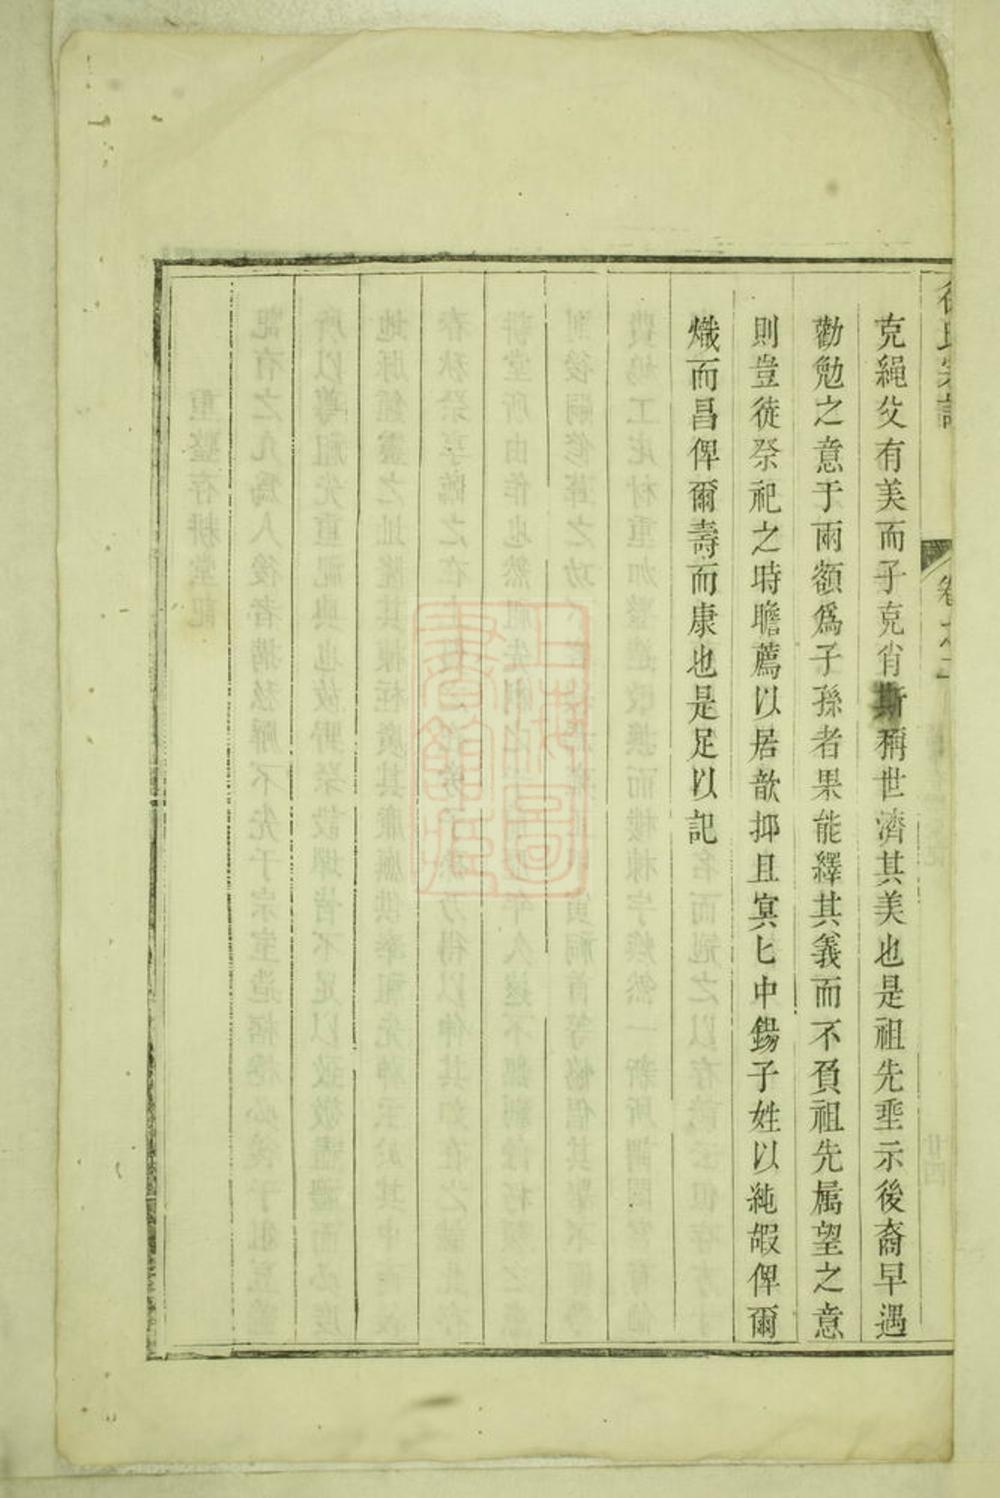 克繩父有美而子克肖斯稱世濟其美也是祖先垂示後裔早遇
勸勉之意于兩額爲子孫者果能繹其義而不負祖先属望之意
則豈徒祭祀之時瞻薦以居歆抑且寘匕中錫子姓以純嘏俾爾
熾而昌俾爾壽而康也是足以記
上海圖書館藏